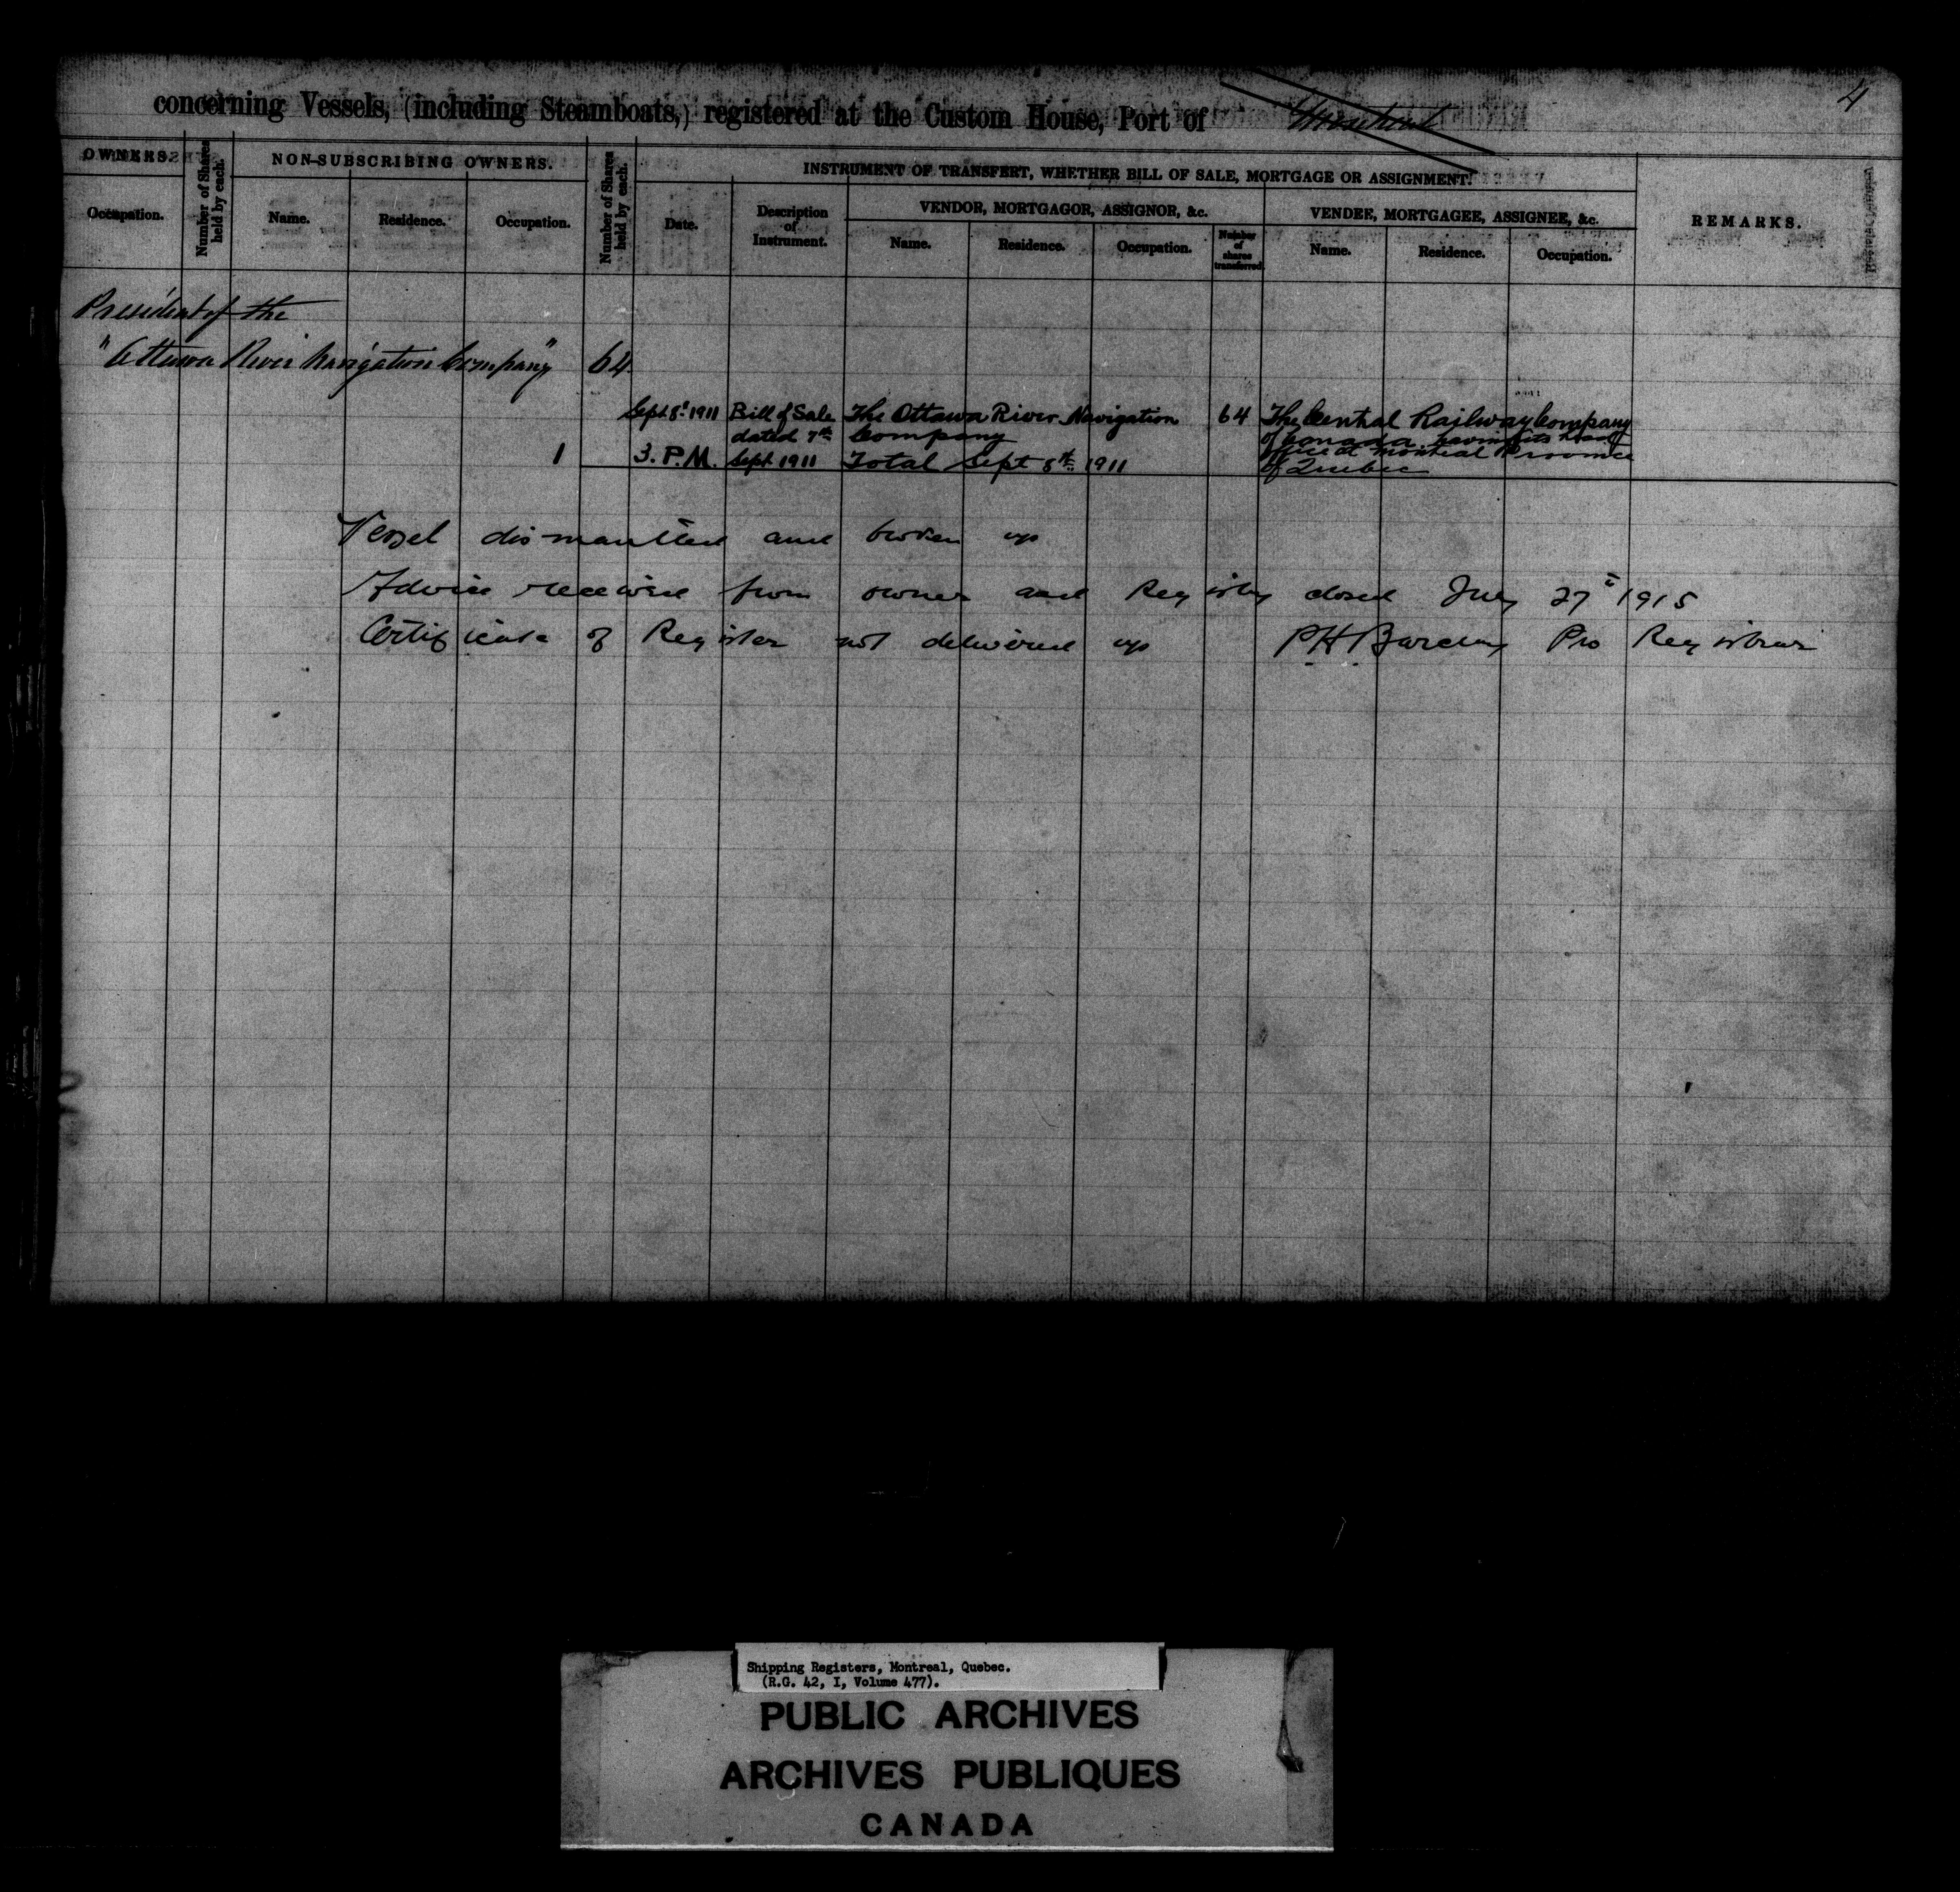 4
concerning Vessels, (including Steamboats,) registered at the Custom House, Port of Montreal
OWNERS.
Number of Shares held by each.
NON-SUBSCRIBING OWNERS.
Number of Shares held by each.
INSTRUMENT OF TRANSFERT, WHETHER BILL OF SALE, MORTGAGE OR ASSIGNMENT.
REMARKS.
VENDOR, MORTGAGOR, ASSIGNOR, &c.
VENDEE, MORTGAGEE, ASSIGNEE, &c.
Occupation.
Name.
Residence.
Occupation.
Date.
Description of Instrument.
Name.
Residence.
Occupation.
Number of shares transferred
Name.
Residence.
Occupation.
President of the
"Ottawa River Navigation Company" 64
Sept 8th 1911 Bill of Sale The Ottawa River Navigation 64 The Central Railway Company
dated 7th Company of Canada having its head
1 3. P.M. Sept 1911 Total Sept 8th 1911 office at Montreal Province
of Quebec
Vessel dismantled and broken up
Advice received from owner and Registry closed July 27th 1915
Certificate of Register not delivered up P H Barclay Pro Registrar
Shipping Registers, Montreal, Quebec.
(R.G. 42, I, Volume 477).
PUBLIC ARCHIVES
ARCHIVES PUBLIQUES
CANADA